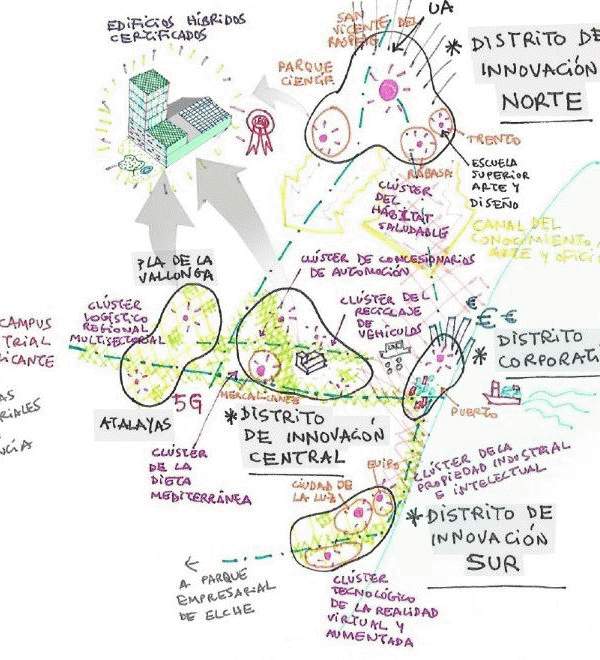 EDIFICIOS HÍBRIDOS
CERTIFICADOS
SAN
VICENTE DEL
RASPEIG
UA
* DISTRITO DE
INNOVACIÓN
NORTE
PARQUE
CIENCE
LEED
TRENTO
RABASA
ESCUELA
SUPERIOR
ARTE Y
DISEÑO
CLÚSTER
DEL
HÁBITAT
SALUDABLE
CANAL DEL
CONOCIMIENTO,
ARTE Y OFICI
PLA DE LA
VALLONGA
CLÚSTER DE CONCESIONARIOS
DE AUTOMOCIÓN
CLÚSTER
LOGÍSTICO
REGIONAL
MULTISECTORIAL
CLÚSTER DEL
RECICLAJE
DE
VEHÍCULOS
€ € €
CAMPUS
TRIAL
ICANTE
* DISTRITO
CORPORATI
AS
RIALES
NCIA
ATALAYAS
5G
MERCALICANTE
PUERTO
* DISTRITO
DE INNOVACIÓN
CENTRAL
CLÚSTER
DE LA
DIETA
MEDITERRÁNEA
CLÚSTER DE LA
PROPIEDAD INDUSTRIAL
E INTELECTUAL
EUIPO
CIUDAD DE
LA LUZ
* DISTRITO DE
INNOVACIÓN
SUR
A PARQUE
EMPRESARIAL
DE ELCHE
CLÚSTER
TECNOLÓGICO
DE LA REALIDAD
VIRTUAL Y
AUMENTADA